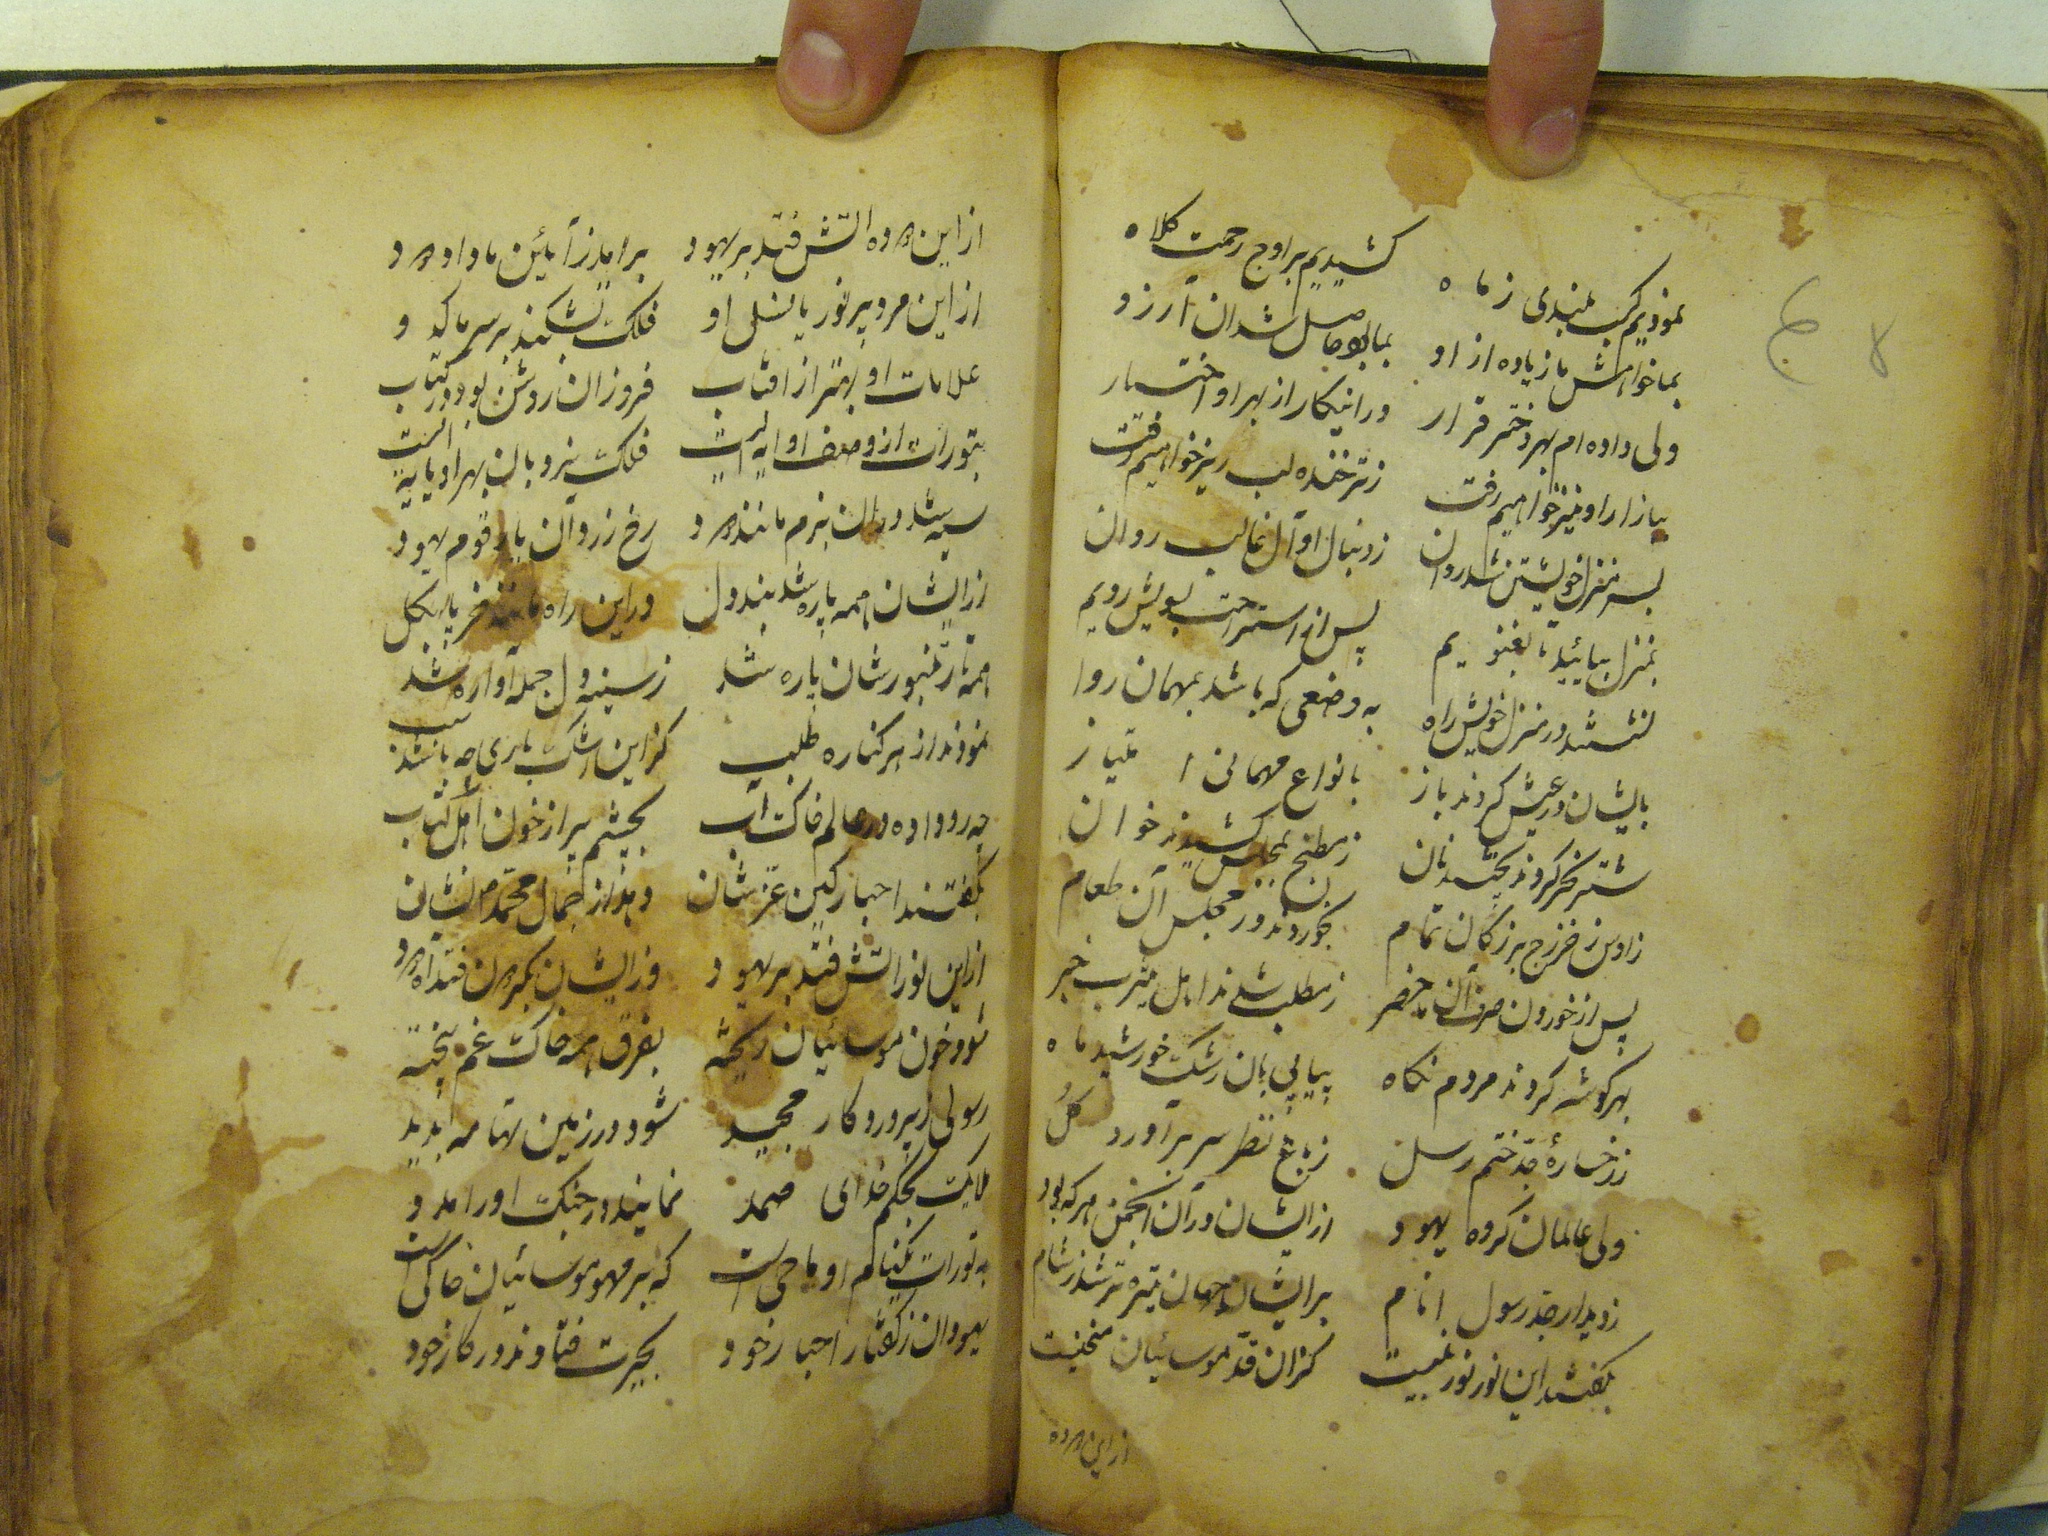 نمودیم کسب بلندی ز ماه کشیدیم بر اوج رحمت کلاه
بما خواهش ما زیاده از او بما بود حاصل شدان آرزو
ولی داده ام بهر دختر قرار در اینکار از بهر او اختیار
ببازار او نیز خواهیم رفت ز تر خنده لب ریز خواهیم رفت
بسر منزل خویشتن شد روان ز دنبال او آل غالب روان
بمنزل بیائید تا بغنویم پس از استراحت بسویش رویم
در منزل خویش راه به وضعی که باشد بمهمان روا
بایشان در عیش کردند باز بانواع مهمانی امتیاز
شتر نحر کردند پختند نان ز مطبخ بمجلس کشیدند خوان
ز اوس ز خزرج بزرگان تمام بخوردند در مجلس آن طعام
پس از خوردن صرف آن ما حضر ز مطلب شدند اهل یثرب خبر
بهر گوشه کردند مردم نگاه پیاپی بان رشک خورشید ماه
ز رخساره جد ختم رسل ز باغ نظر سر بر آورد گل
ولی عالمان گروه یهود از ایشان در آن انجمن هر که بود
ز دیدار جد رسول انام بر ایشان جهان تیره تر شد ز شام
بگفتند این نور نور نبیست کزان قد موسائیان منحنیست
از این مرده
از این مرده آتش فتد بر یهود بر آید ز آیین ما داد و دود
از این مرد پر نور یا نسل او فلک بشکند بر سر ما کدو
علامات او بهتر از افتاب فروزان روشن بود در کتاب
بتورات از وصف او ایه ایست فلک نیز دبان بهر او پایه ایست
سیه شد در آن بزم مانند دود رخ زرد آن پار قوم یهود
ز ایشان همه پاره شد بند دل در این راه ماندند خر پا بگل
همه تار تنبورشان پاره شد ز سینه دل جمله آواره شد
نمودند از هر کناره طلب کز این رشک باری چه باشد سبب
چه رو داده در عالم خاک آب بچشم پر از خون اهل کتاب
بگفتند احبار کین عز شان دهد از جمال محمد نشان
از این نور اتش فتد بر یهود وز ایشان بگردون فتد آه دود
شود خون موسائیان ریخته بفرق همه خاک غم بیخته
رسولی ز پروردگار مجید شود در زمین تهامه پدید
ملایک بحکم خدای صمد نمایند در جنگ او را مدد
به تورات یکنام او ماحی است که بر محو موسائیان حاکی است
یهودان ز گفتار احبار خود بحیرت فتادند در کار خود